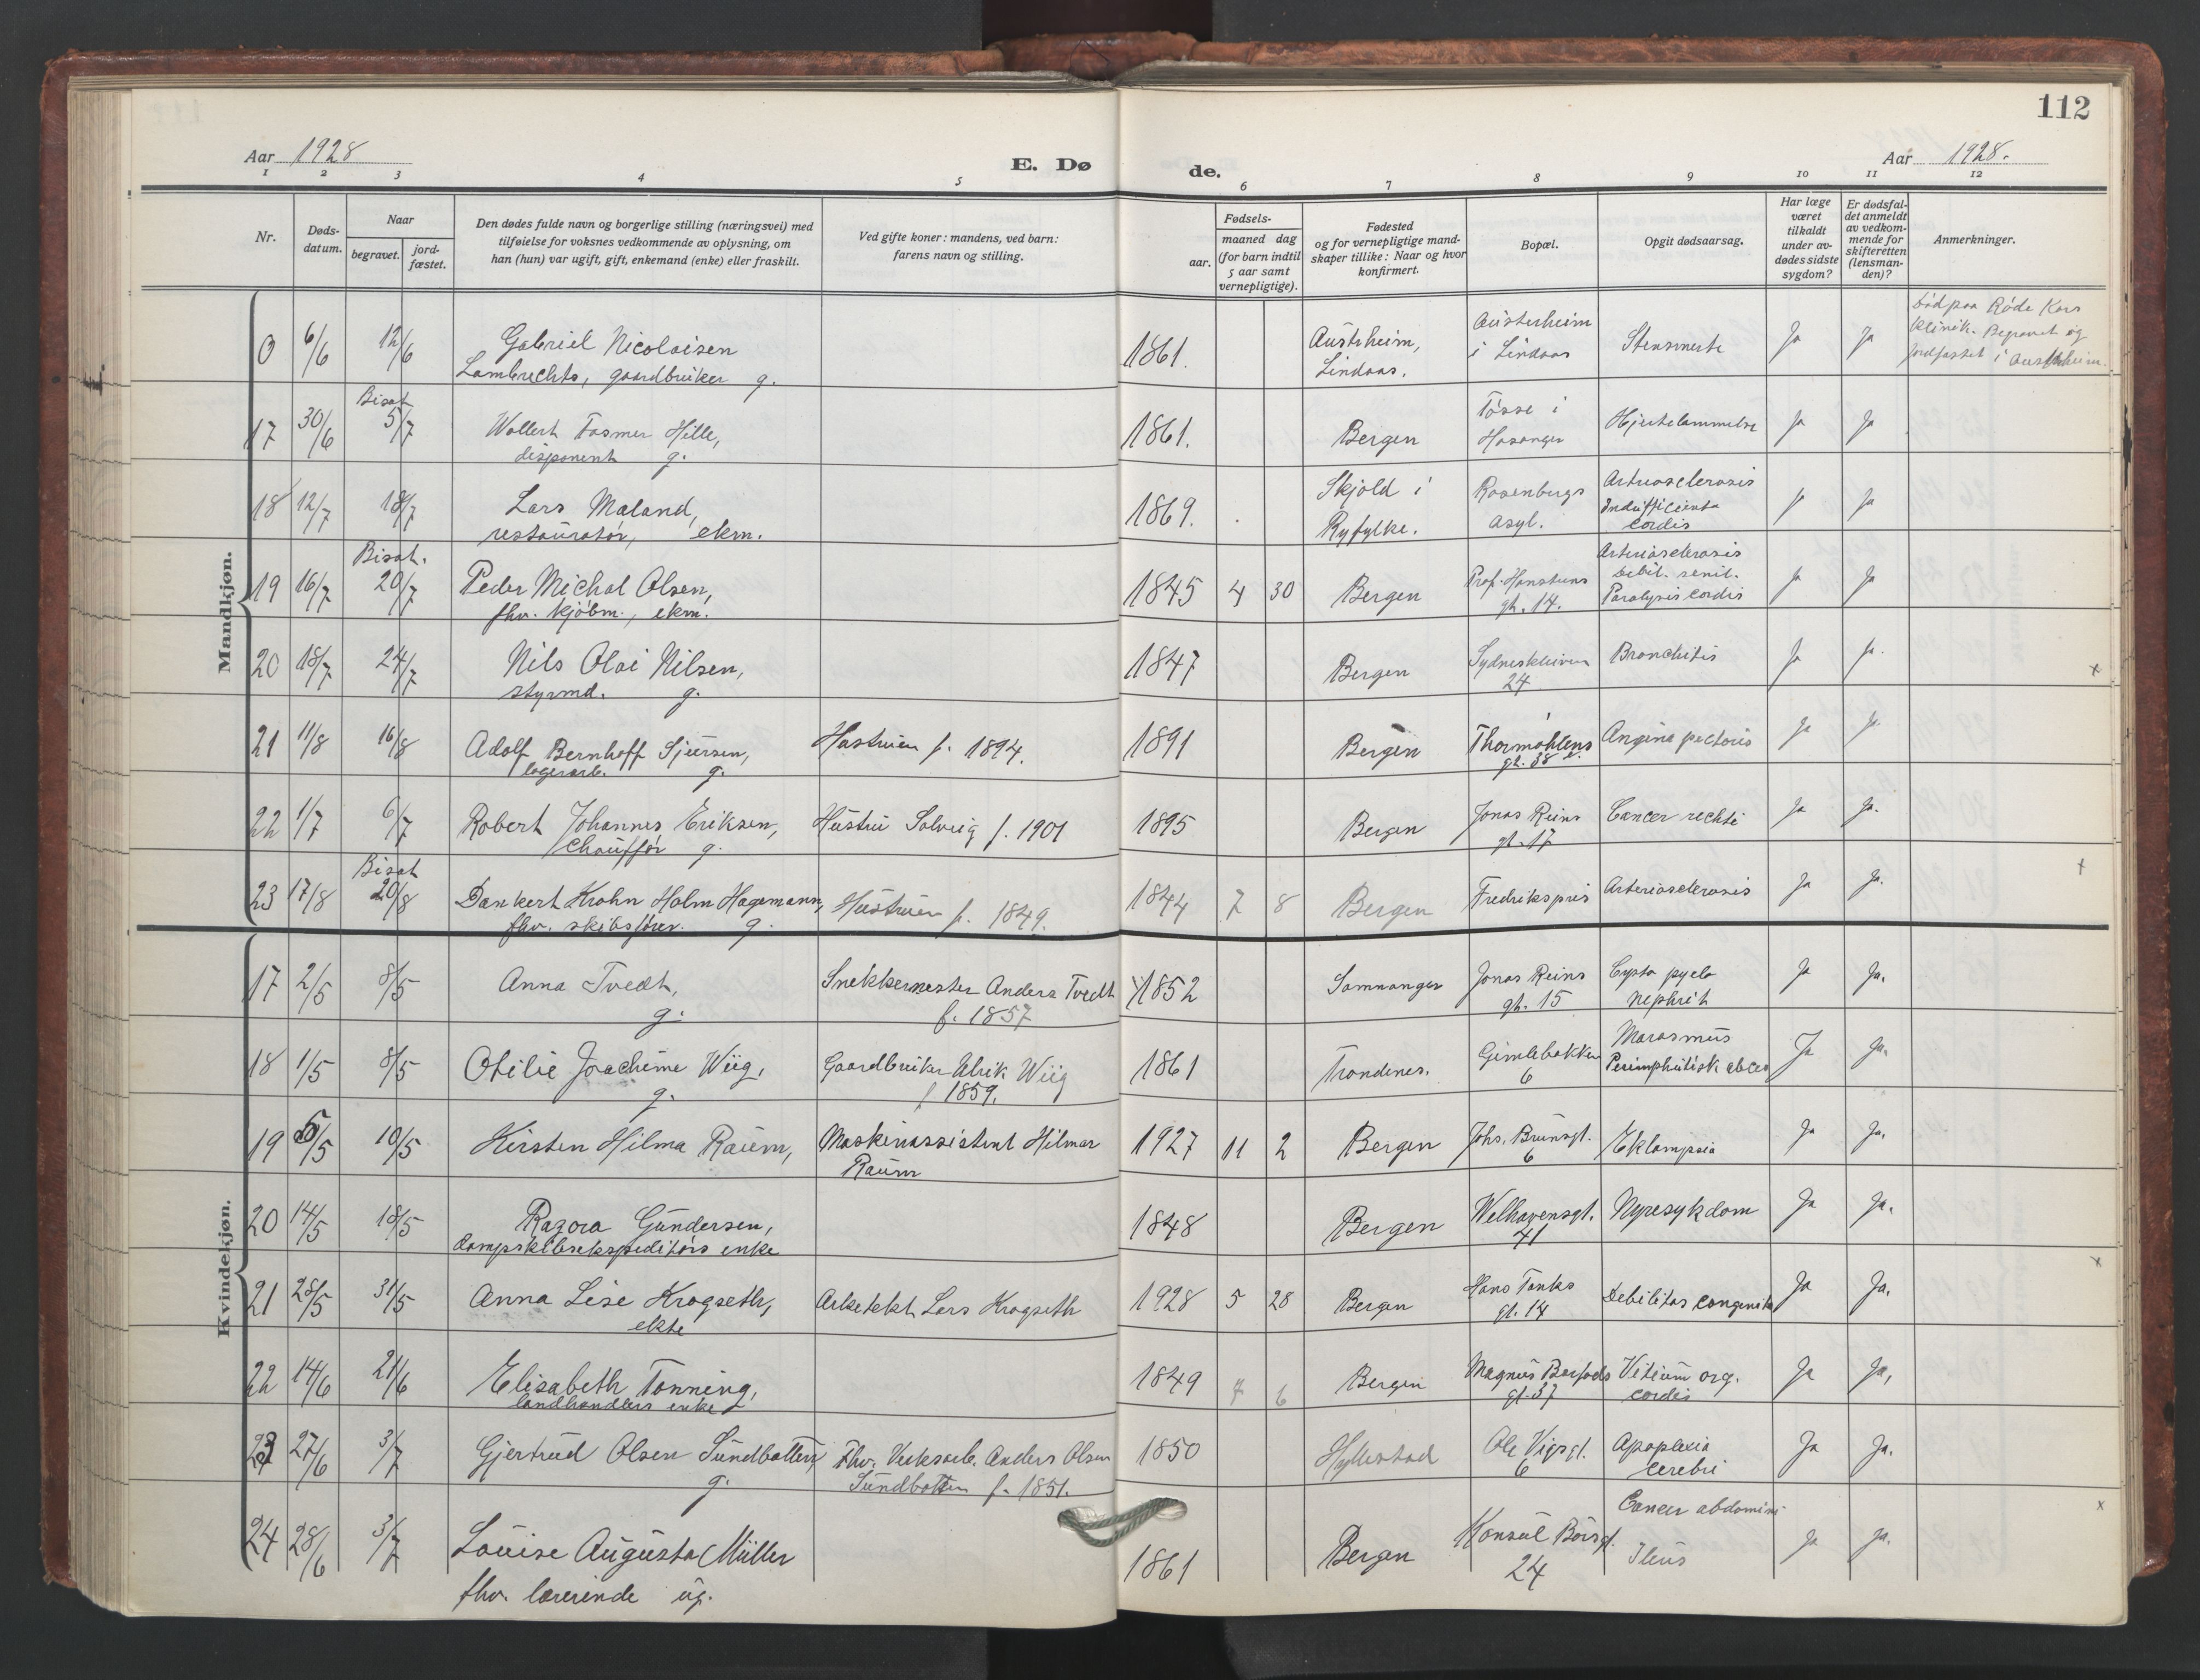 112
Aar 1928
E. Dø
de.
Aar 1928.
1 2 3 4 5 6 7 8 9 10 11 12
Nr.
Døds-
datum.
Naar
begravet.
jord-
fæstet.
Den dødes fulde navn og borgerlige stilling (næringsvei) med
tilføielse for voksnes vedkommende av oplysning, om
han (hun) var ugift, gift, enkemand (enke) eller fraskilt.
Ved gifte koner: mandens, ved barn:
farens navn og stilling.
Fødsels-
aar.
maaned dag
(for barn indtil
5 aar samt
vernepligtige).
Fødested
og for vernepligtige mand-
skaper tillike: Naar og hvor
konfirmert.
Bopæl.
Opgit dødsaarsag.
Har læge
været
tilkaldt
under av-
dødes sidste
sygdom?
Er dødsfal-
det anmeldt
av vedkom-
mende for
skifteretten
(lensman-
den)?
Anmerkninger.
Mandkjøn.
0 6/6 12/6 Gabriel Nicolaisen
Lambrechts, gaardbruker g.
1861. Austrheim,
Lindaas.
Austerheim
i Lindaas
Stensmerte Ja Ja
Død paa Røde Kors
Klinik. Begravet og
jordfæstet i Austrheim.
17 30/6 Bisat
5/7 Wollert Fasmer Hille,
disponent g.
1861. Bergen Tosse i
Hosanger
Hjertelammelse Ja Ja
18 12/7 18/7 Lars Maland,
restauratør, ekm.
1869. Skjold i
Ryfylke.
Rosenbergs
asyl.
Arteriosclerosis
Insufficientia
cordis
Ja Ja
19 16/7 Bisat.
20/7 Peder Michal Olsen,
fhv. kjøbm., ekm.
1845 4 30 Bergen Prof. Hansteens
gt. 14.
Arteriosclerosis
debil. senil.
Paralysis cordis
Ja Ja
20 18/7 24/7 Nils Olai Nilsen,
styrmd. g.
1847 Bergen Sydneskleiven
24
Bronchitis Ja Ja. x
21 11/8 16/8 Adolf Bernhoff Sjursen,
lagerarb. g.
Hustruen f. 1894.
1891 Bergen Thormøhlens
gt. 38 e.
Angina pectoris Ja Ja
22 1/7 6/7 Robert Johannes Eriksen,
Chauffør g.
Hustru Solveig f. 1901
1895 Bergen Jonas Reins
gt. 17
Cancer rechti Ja Ja.
23 17/8 Bisat
20/8 Dankert Krohn Holm Hagemann,
fhv. skibsfører. g.
Hustruen f. 1849.
1844 7 8 Bergen Fredrikspris Arteriosclerosis Ja Ja. +
Kvindekjøn.
17 2/5 8/5 Anna Tvedt,
g.
Snekkermester Anders Tvedt
f. 1857
1852 Samnanger Jonas Reins
gt. 15
Cysto pyelo
nephrit
Ja Ja.
18 1/5 8/5 Otilie Joachime Wiig,
g.
Gaardbruker Ulrik Wiig
f 1859.
1861 Trondenes. Gimlebakken
6
Marasmus
Ja Ja.
19 6/5 10/5 Kirsten Hilma Raum,
Maskinassistent Hilmar
Raum
1927 11 2 Bergen Johs. Brunsgt.
6
Eklampsia Ja Ja.
20 14/5 18/5 Razora Gundersen,
dampskibsekspeditørs enke
1848 Bergen Welhavensgt.
41
Nyresykdom Ja Ja.
21 28/5 31/5 Anna Lise Krogseth,
ekte
Arketekt Lars Krogseth
1928 5 28 Bergen Hans Tanks
gt. 14
Debilitas congenita Ja Ja. x
22 14/6 21/6 Elisabeth Tonning,
landhandlers enke
1849 7 6 Bergen Magnus Barfods
gt. 37
Vitium org.
cordis
Ja Ja,
23 27/6 3/7 Gjertrud Olsen Sundbotten,
g.
Fhv. Verksarb. Anders Olsen
Sundbotten f. 1851.
1850 Hyllestad Ole Vigsgt.
6
Apoplexia
cerebri
Ja Ja.
24 28/6 3/7 Louise Augusta Müller
fhv. lærerinde ug.
1861 Bergen Konsul Børsgt.
24
Cancer abdomini
Ileus
Ja Ja. x